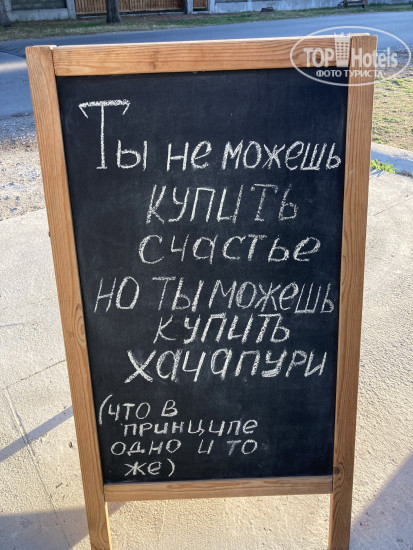 TOPHotels
ФОТО ТУРИСТА
Ты не можешь
купить
счастье
но ты можешь
купить
хачапури
(что в
принципе
одно и то
же)